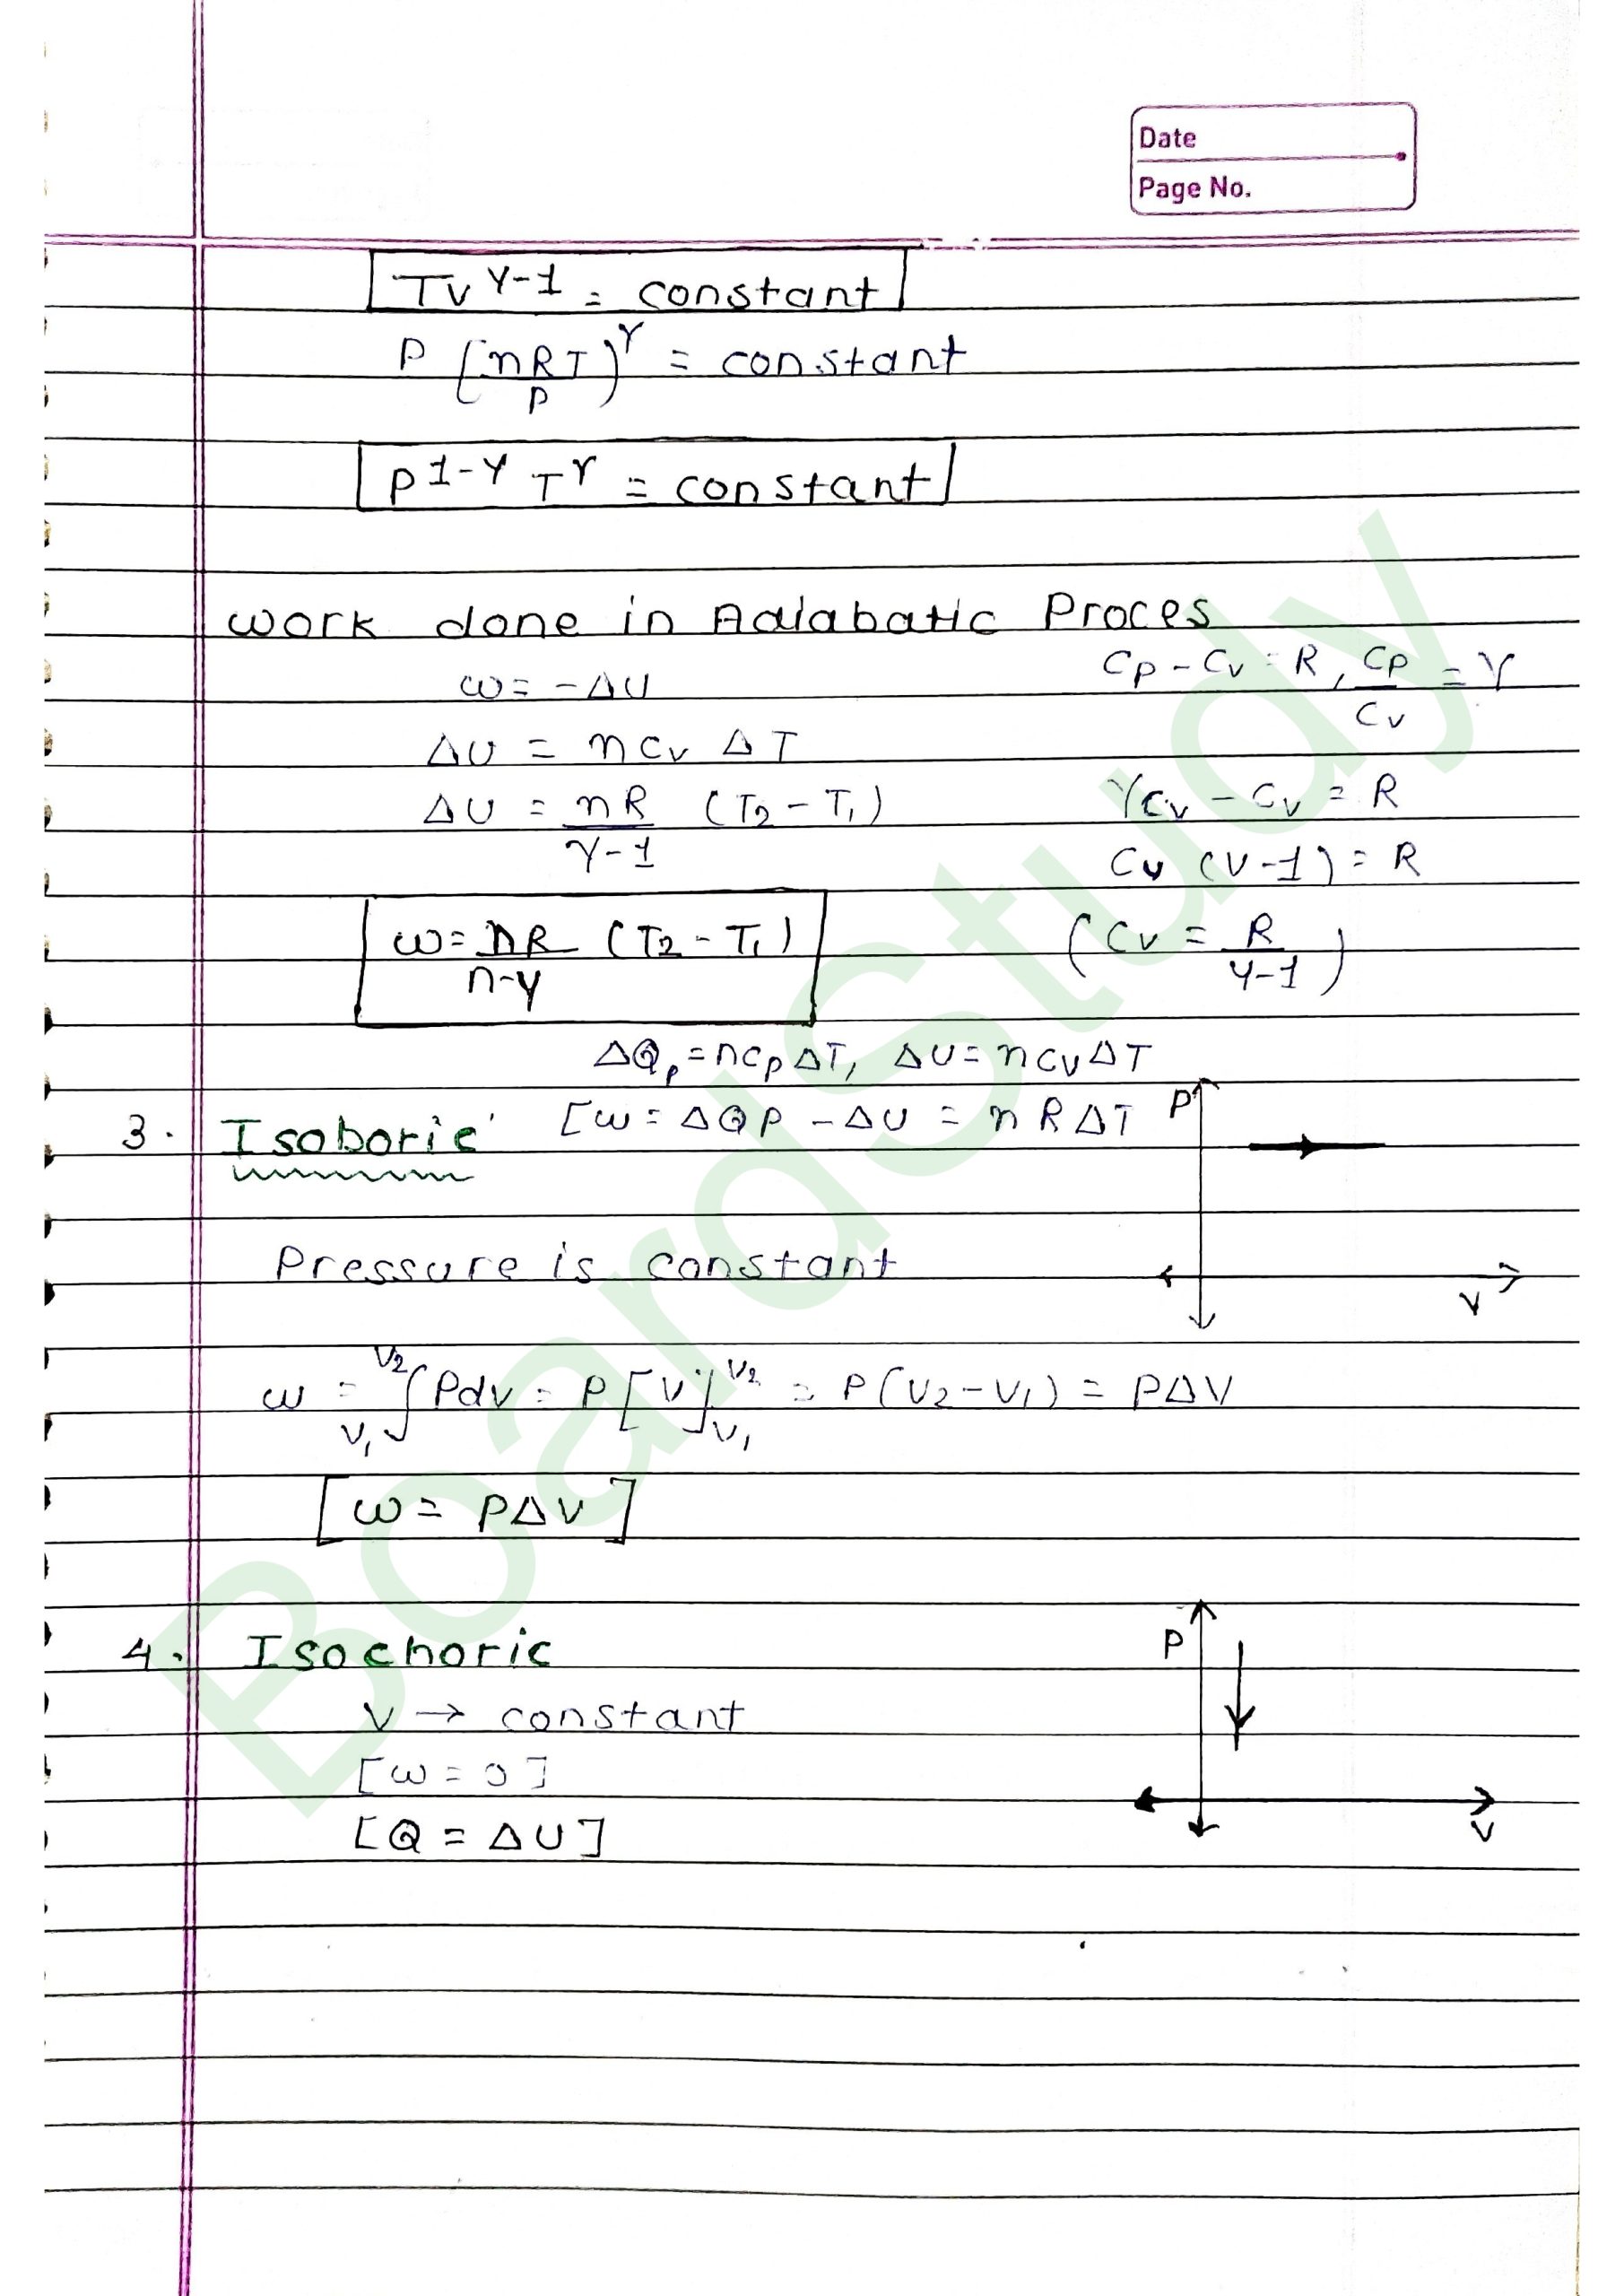 Date
Page No.
TV^γ-1 = constant
P [nRT/P)^γ = constant
P^1-γ T^γ = constant
work done in Adiabatic Proces
Cp - Cv = R, Cp/Cv = γ
ω = -ΔU
ΔU = nCv ΔT
ΔU = nR/γ-1 (T2 - T1)
γCv - Cv = R
Cv (V-1) = R
ω = nR/n-γ (T2 - T1)
(Cv = R/γ-1)
ΔQp = nCpΔT, ΔU = nCvΔT
3. Isoboric
[ω = ΔQP - ΔU = nRΔT
P
Pressure is constant
V
ω = V1∫V2 Pdv = P[V]V1V2 = P(V2-V1) = PΔV
[ω = PΔV]
4. Isochoric
P
V → constant
[ω = 0]
[Q = ΔU]
V
BoardStudy